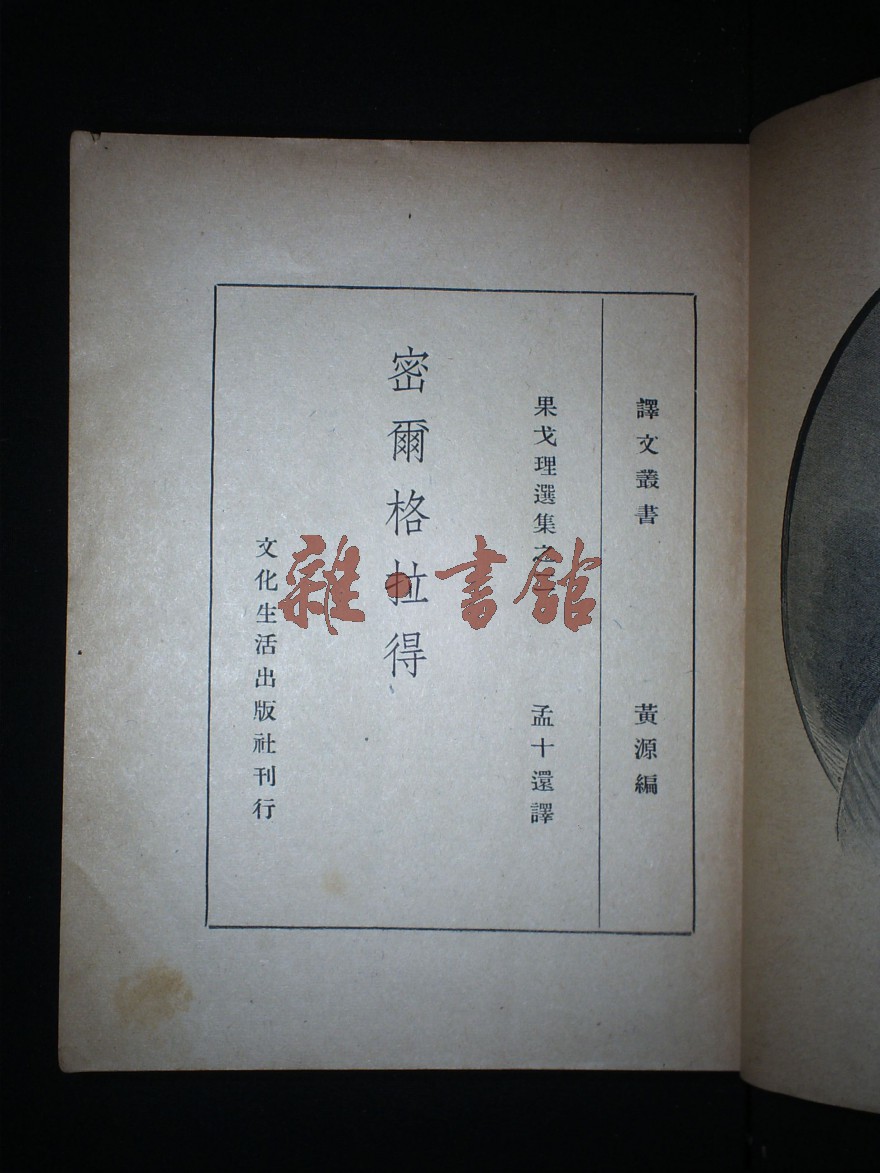 譯文叢書 黃源編
果戈理選集之二 孟十還譯
密爾格拉得
文化生活出版社刊行
雜·書館